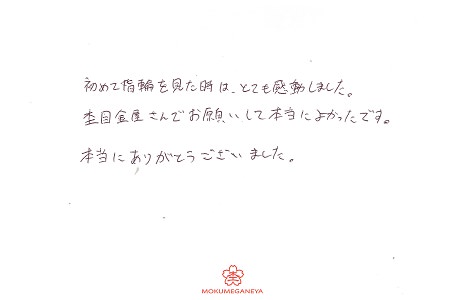 初めて指輪を見た時は、とても感動しました。
杢目金屋さんでお願いして本当によかったです。
本当にありがとうございました。
MOKUMEGANEYA